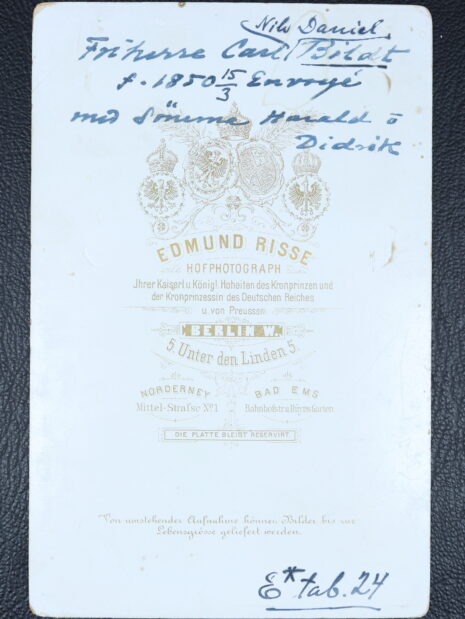 Nils Daniel
Friherre Carl Bildt
f. 1850 15/3 Envoyé
med Sönerna Harald o
Didrik
EDMUND RISSE
HOFPHOTOGRAPH
Jhrer Kaiserl u. Königl. Hoheiten des Kronprinzen und
der Kronprinzessin des Deutschen Reiches
u. von Preussen
BERLIN W.
5. Unter den Linden 5.
NORDERNEY BAD EMS
Mittel-Strafse No 1 Bahnhofstr. a/Fürstengarten
DIE PLATTE BLEIBT RESERVIRT.
Von umstehender Aufnahme können Bilder bis zur
Lebensgrösse geliefert werden.
E* tab. 24